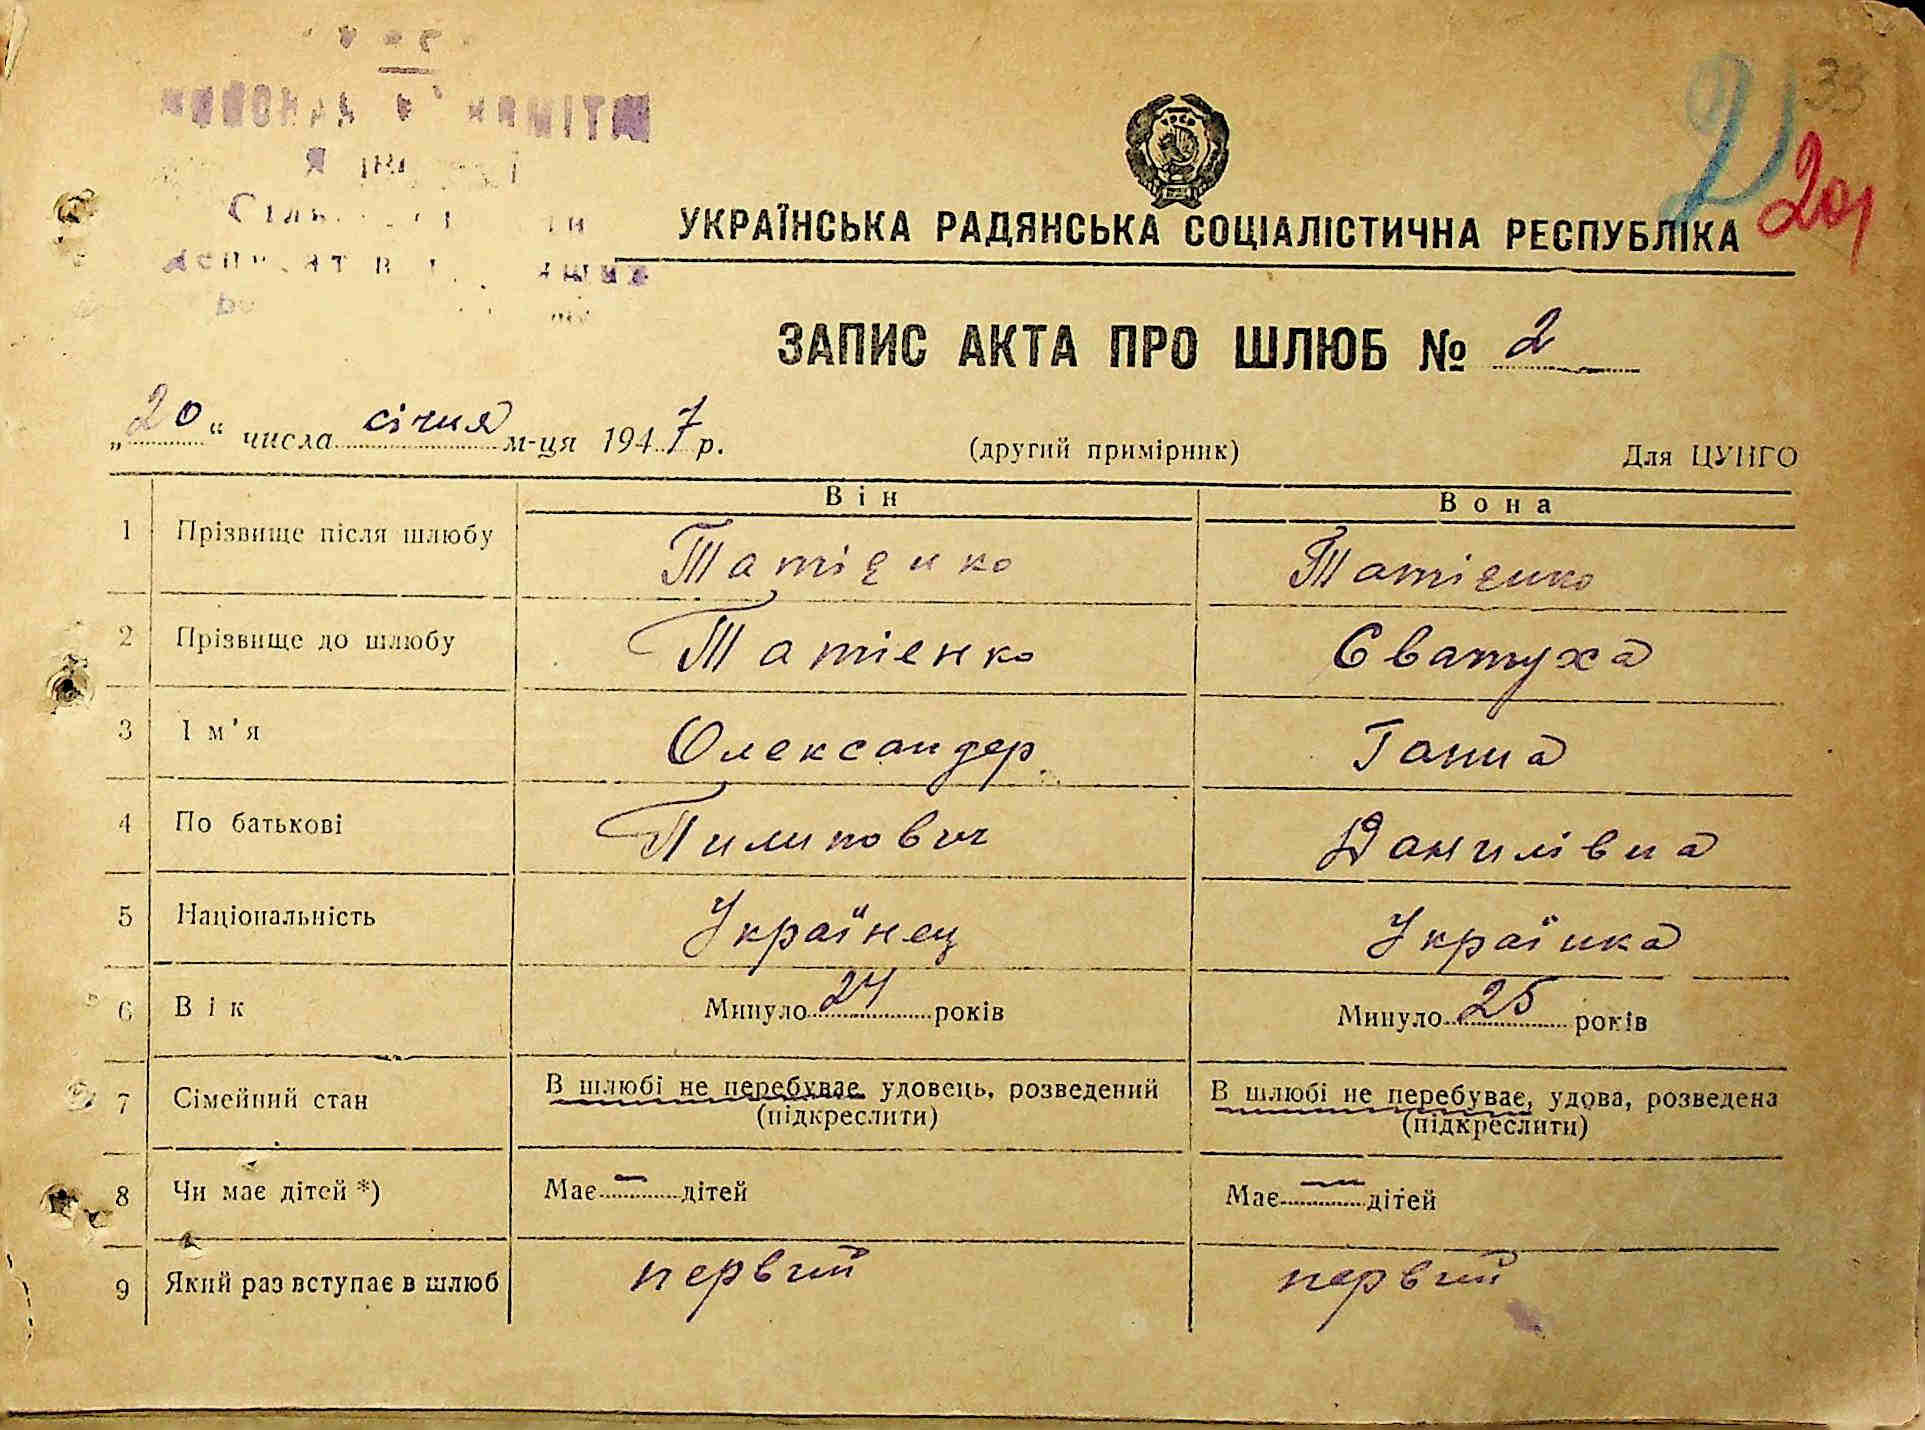 33
2
20
УКРАЇНСЬКА РАДЯНСЬКА СОЦІАЛІСТИЧНА РЕСПУБЛІКА
ЗАПИС АКТА ПРО ШЛЮБ № 2
„20“ числа січня м-ця 1947 р. (другий примірник) Для ЦУНГО
Він Вона
1 Прізвище після шлюбу Татіенко Татіенко
2 Прізвище до шлюбу Татіенко Сватуха
3 Ім'я Олександер Ганна
4 По батькові Пилипович Данилівна
5 Національність Українец Українка
6 Вік Минуло 24 років Минуло 25 років
7 Сімейний стан В шлюбі не перебуває, удовець, розведений (підкреслити) В шлюбі не перебуває, удова, розведена (підкреслити)
8 Чи має дітей *) Має — дітей Має — дітей
9 Який раз вступає в шлюб первий первий